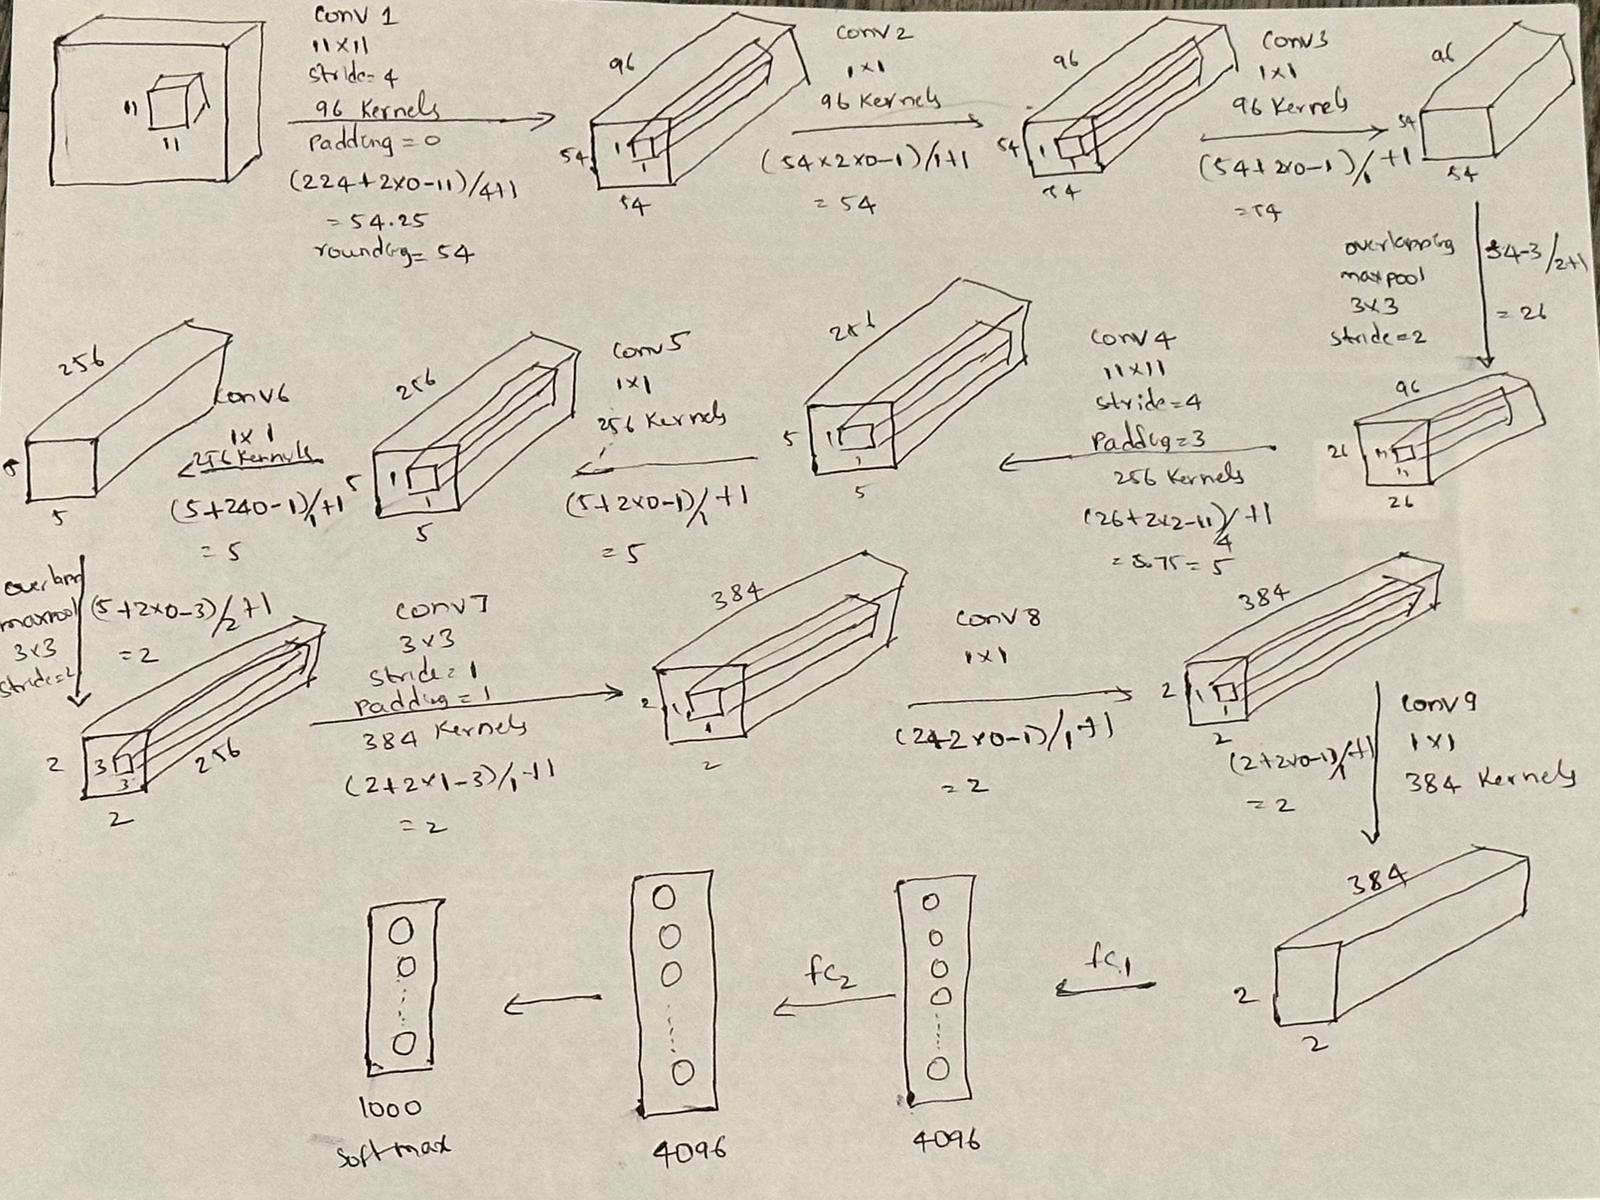 Conv 1
11x11
stride=4
96 Kernels
Padding=0
(224+2x0-11)/4+1
=54.25
rounding=54
11
11
96
54
1
1
54
Conv 2
1x1
96 Kernels
(54x2x0-1)/1+1
=54
96
54
1
1
54
Conv3
1x1
96 Kernels
(54+2x0-1)/1+1
=54
96
54
54
overlapping
maxpool
3x3
stride=2
54-3/2+1
=26
96
26
11
11
26
Conv4
11x11
stride=4
Padding=3
256 Kernels
(26+2x2-11)/4+1
=5.75=5
256
5
1
1
5
Conv5
1x1
256 Kernels
(5+2x0-1)/1+1
=5
256
5
1
1
5
Conv6
1x1
256 Kernels
(5+2x0-1)/1+1
=5
256
5
5
maxpool
3x3
stride=2
(5+2x0-3)/2+1
=2
256
2
3
3
2
Conv7
3x3
stride=1
Padding=1
384 Kernels
(2+2x1-3)/1+1
=2
384
2
1
1
2
Conv8
1x1
(2+2x0-1)/1+1
=2
384
2
1
1
2
Conv9
1x1
384 Kernels
(2+2x0-1)/1+1
=2
384
2
2
fc1
4096
fc2
4096
1000
Softmax